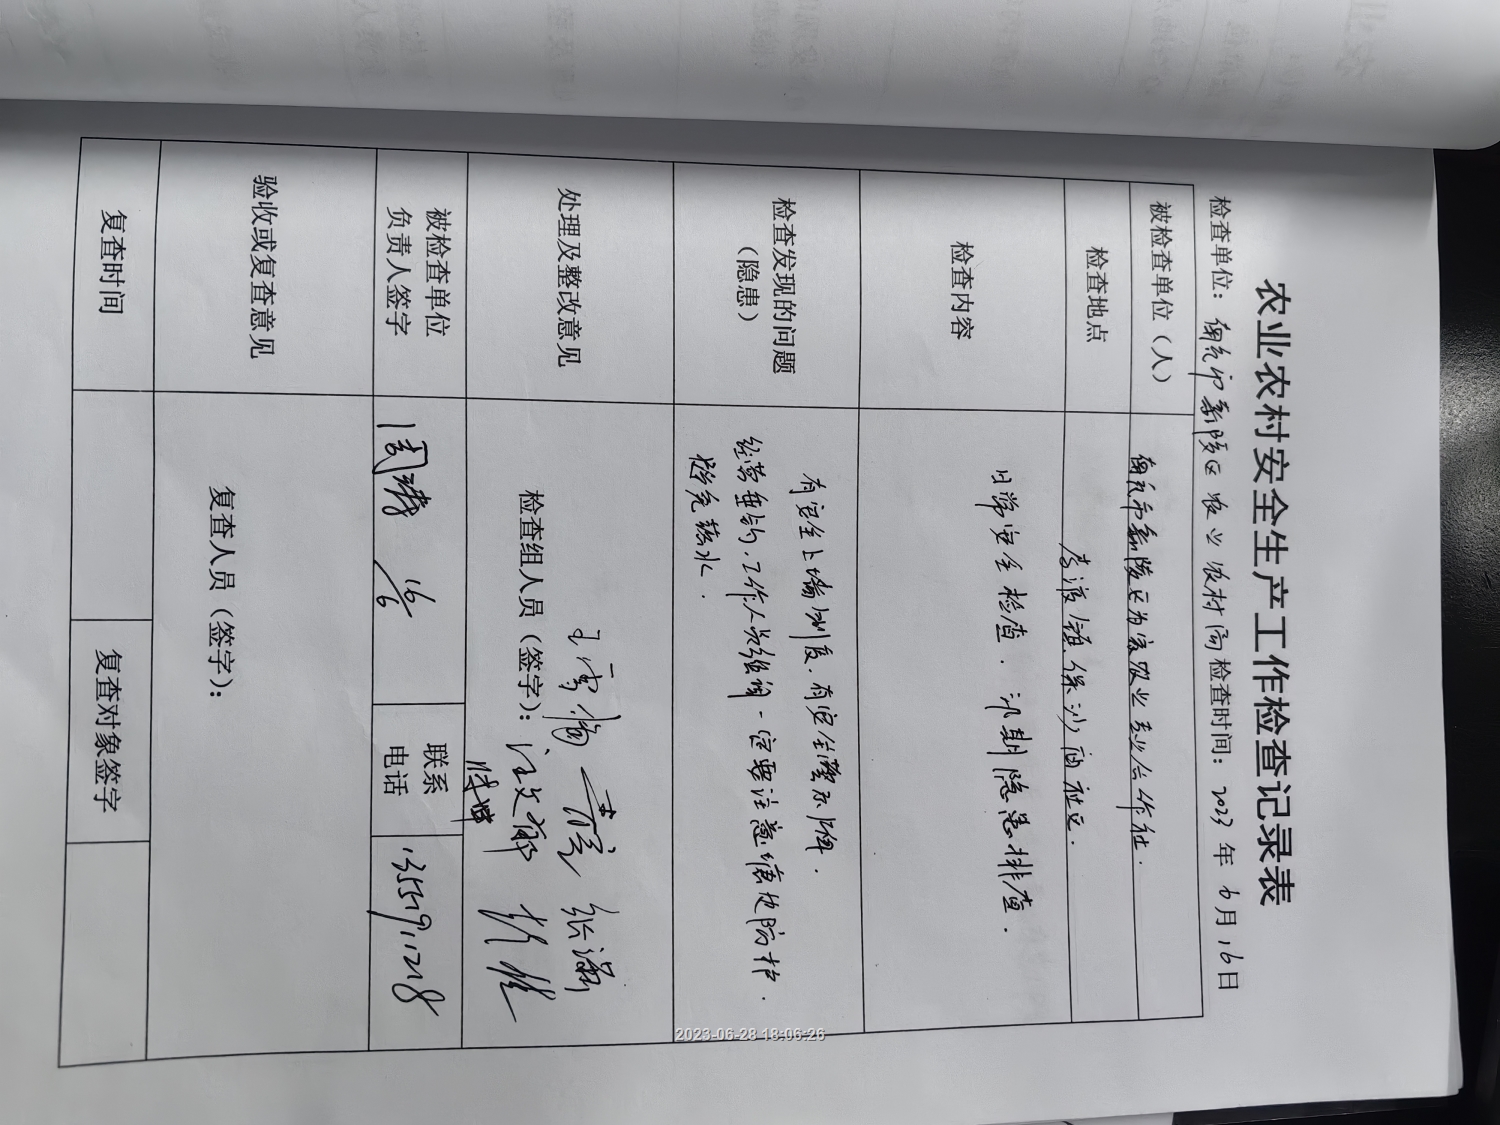 农业农村安全生产工作检查记录表
检查单位：南充市嘉陵区农业农村局 检查时间：2023年6月16日
被检查单位（人） 南充市嘉陵区为家农业专业合作社.
检查地点 李渡镇保沙庙社区.
检查内容 日常安全检查. 汛期隐患排查.
检查发现的问题
（隐患）
有安全上墙制度. 有安全警示牌.
经营垂钓, 工作人员组间一定要注意塘边防护.
防范落水.
处理及整改意见
检查组人员（签字）：
被检查单位
负责人签字
16/6
联系
电话
验收或复查意见
复查人员（签字）：
复查时间 复查对象签字
2023-06-28 18:06:26